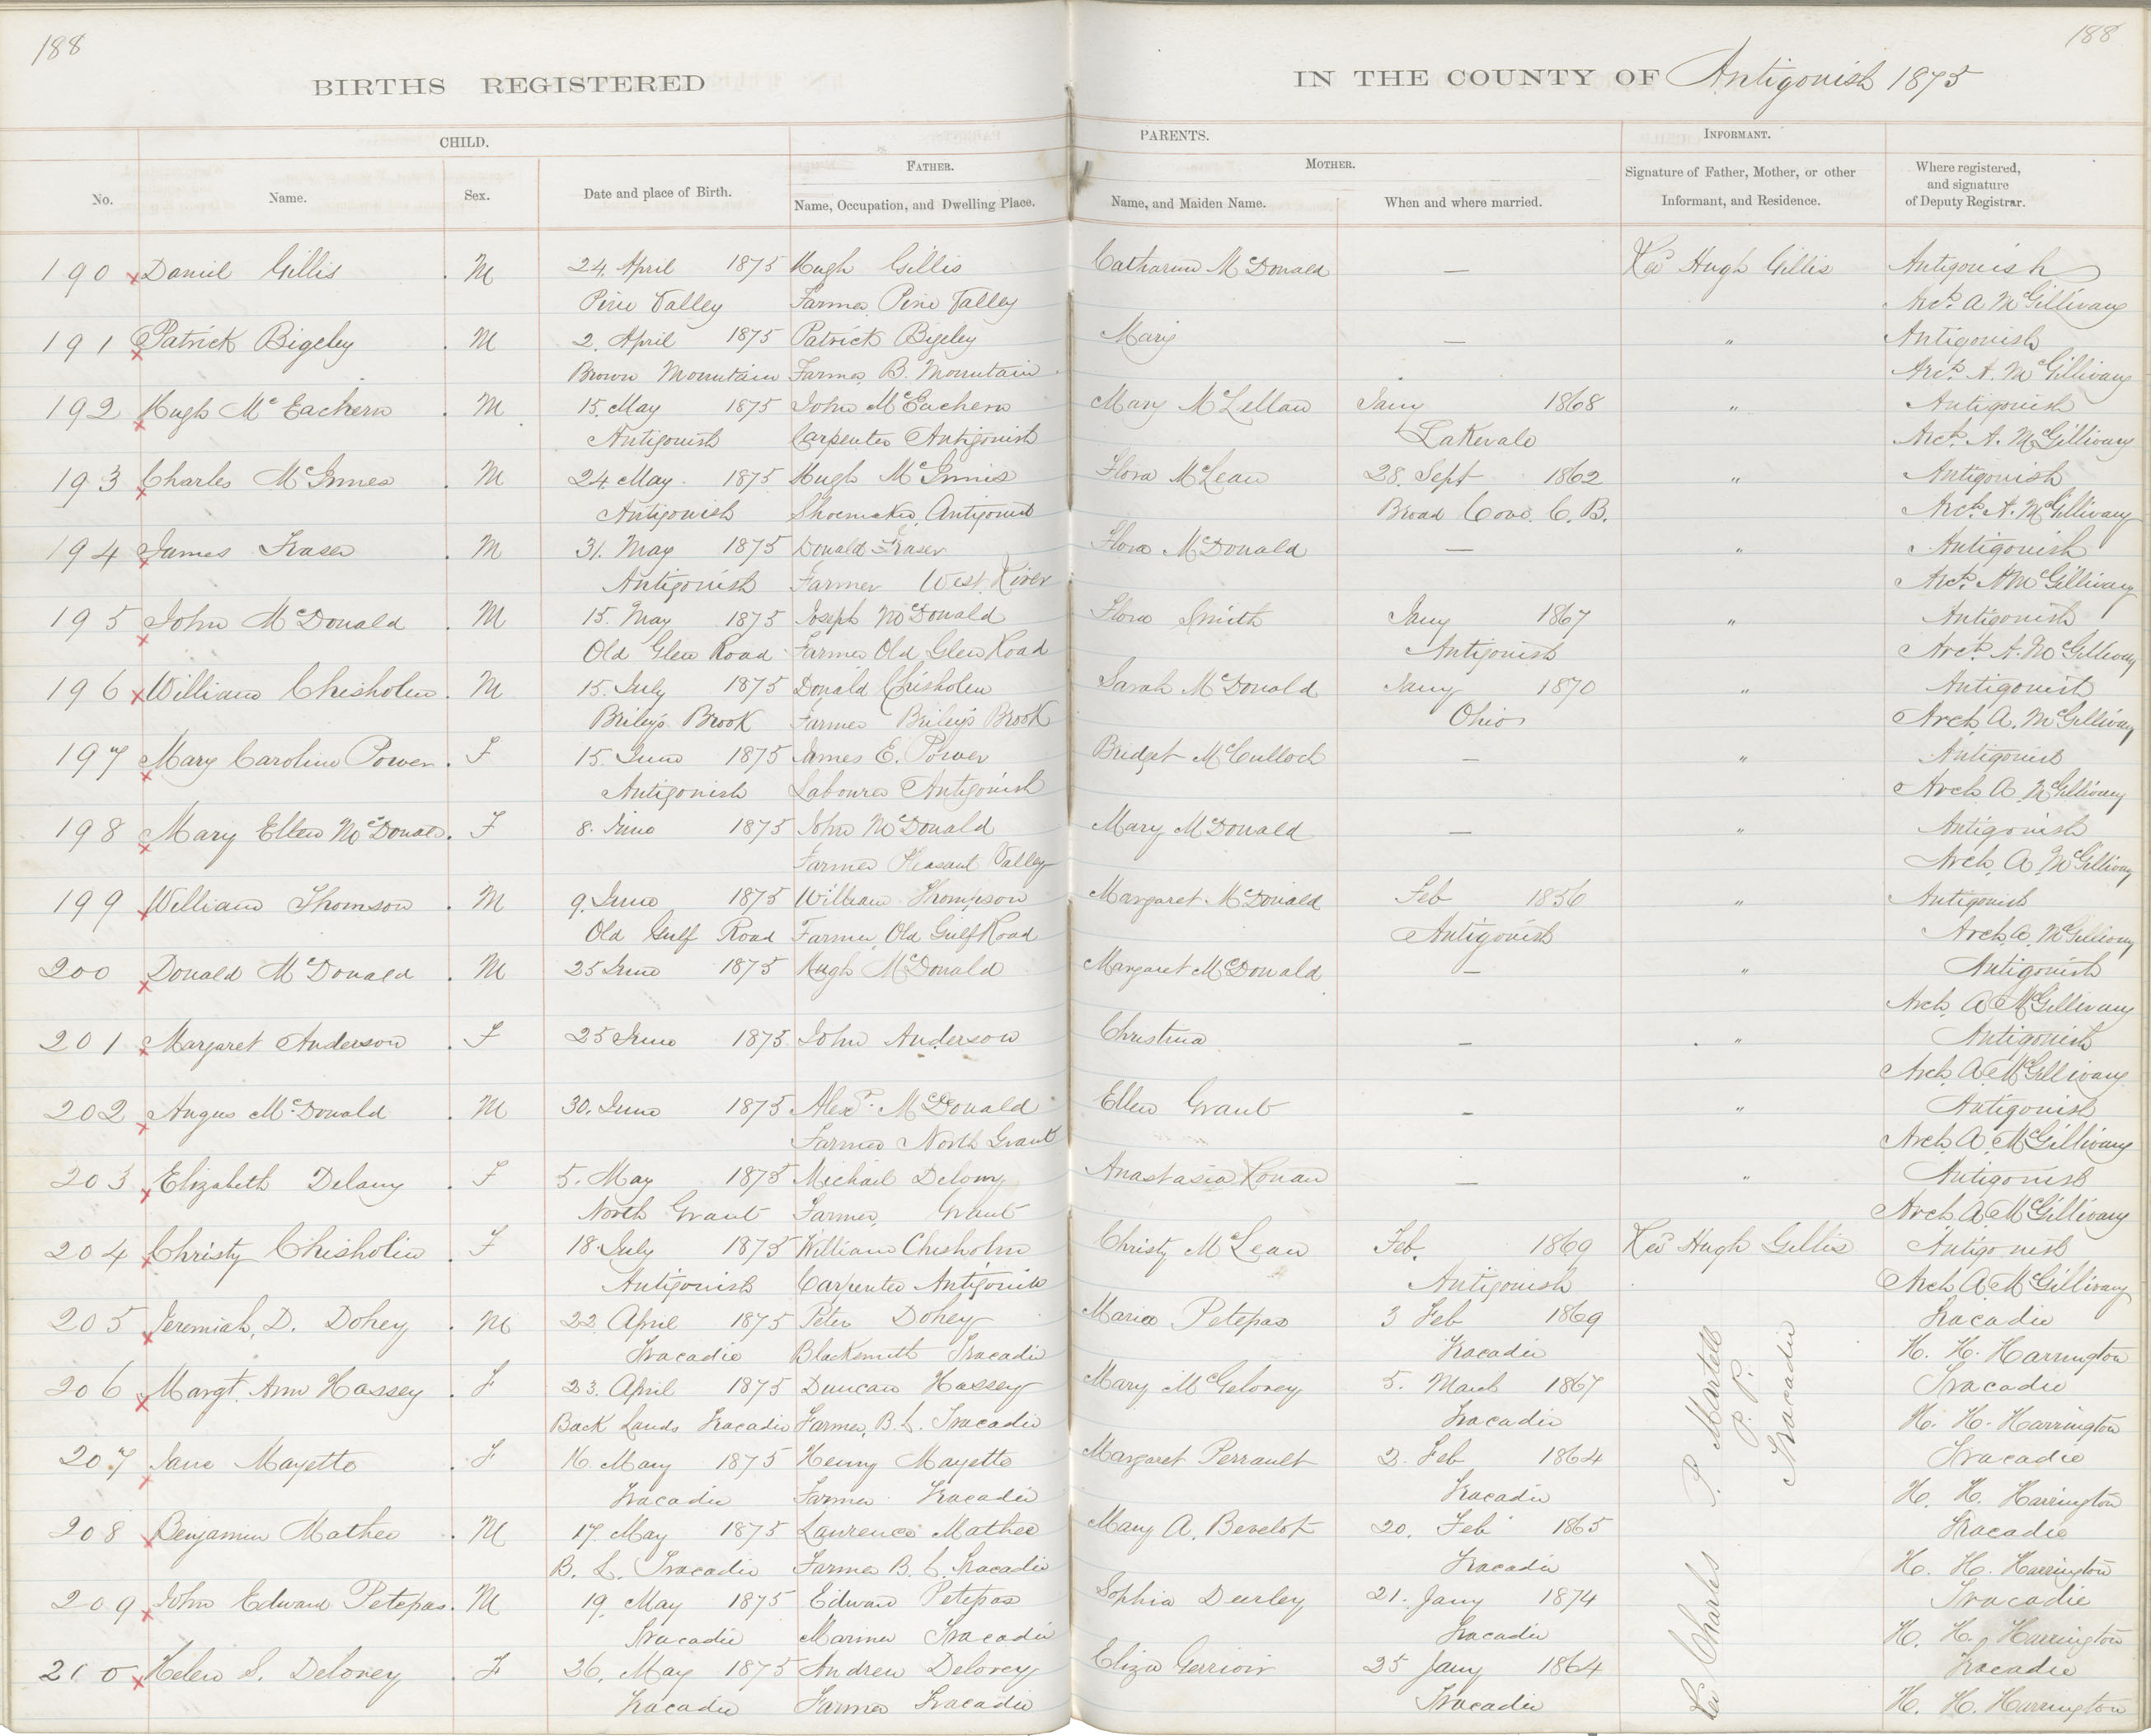 188
188
BIRTHS REGISTERED IN THE COUNTY OF Antigonish 1875
CHILD. PARENTS. INFORMANT.
FATHER. MOTHER.
No. Name. Sex. Date and place of Birth. Name, Occupation, and Dwelling Place. Name, and Maiden Name. When and where married. Signature of Father, Mother, or other Informant, and Residence. Where registered, and signature of Deputy Registrar.
190 Daniel Gillis M 24. April 1875 Hugh Gillis Catharine McDonald — Rev Hugh Gillis Antigonish
Pine Valley Farmer Pine Valley Archd. A McGillivray
191 Patrick Bigeley M 2. April 1875 Patrick Bigeley Mary — " Antigonish
Brown Mountain Farmer B. Mountain Archd. A. McGillivray
192 Hugh McEachern M 15. May 1875 John McEachern Mary McLellan Jany 1868 " Antigonish
Antigonish Carpenter Antigonish Lakevale Archd. A. McGillivray
193 Charles McInnes M 24. May 1875 Hugh McInnis Flora McLean 28. Sept 1862 " Antigonish
Antigonish Shoemaker Antigonish Broad Cove. C. B. Archd. A. McGillivray
194 James Fraser M 31. May 1875 Donald Fraser Flora McDonald — " Antigonish
Antigonish Farmer West River Archd. A McGillivray
195 John McDonald M 15. May 1875 Joseph McDonald Flora Smith Jany 1867 " Antigonish
Old Glen Road Farmer Old Glen Road Antigonish Archd. A. McGillivray
196 William Chisholm M 15. July 1875 Donald Chisholm Sarah McDonald Jany 1870 " Antigonish
Briley's Brook Farmer Briley's Brook Ohio Arch A. McGillivray
197 Mary Caroline Power F 15. June 1875 James E. Power Bridget McCulloch — " Antigonish
Antigonish Labourer Antigonish Arch A. McGillivray
198 Mary Ellen McDonald F 8. June 1875 John McDonald Mary McDonald — " Antigonish
Farmer Pleasant Valley Arch. A. McGillivray
199 William Thomson M 9. June 1875 William Thompson Margaret McDonald Feb 1856 " Antigonish
Old Gulf Road Farmer, Old Gulf Road Antigonish Arch A. McGillivray
200 Donald McDonald M 25 June 1875 Hugh McDonald Margaret McDonald — " Antigonish
Arch. A McGillivray
201 Margaret Anderson F 25 June 1875 John Anderson Christina — " Antigonish
Arch. A McGillivray
202 Angus McDonald M 30. June 1875 Alexr. McDonald Ellen Grant — " Antigonish
Farmer North Grant Arch. A. McGillivray
203 Elizabeth Delany F 5. May 1875 Michail Delany Anastasia Ronan — " Antigonish
North Grant Farmer, Grant Arch A. McGillivray
204 Christy Chisholm F 18. July 1875 William Chisholm Christy McLean Feb. 1869 Rev Hugh Gillis Antigonish
Antigonish Carpenter Antigonish Antigonish Arch A. McGillivray
205 Jeremiah, D. Dohey M 22 April 1875 Peter Dohey Maria Petepas 3 Feb 1869 Tracadie
Tracadie Blacksmith Tracadie Tracadie H. H. Harrington
206 Margt. Ann Hassey F 23. April 1875 Duncan Hassey Mary McGeloney 5. March 1867 Tracadie
Back Lands Tracadie Farmer, B. L. Tracadie Tracadie H. H. Harrington
207 Jane Mayette F 16. May 1875 Henry Mayette Margaret Perrault 2. Feb 1864 Tracadie
Tracadie Farmer Tracadie Tracadie H. H. Harrington
208 Benjamin Mathee M 17. May 1875 Laurence Mathee Mary A. Benelot 20. Feb 1865 Tracadie
B. L. Tracadie Farmer B. L. Tracadie Tracadie H. H. Harrington
209 John Edward Petepas M 19. May 1875 Edward Petepas Sophia Deurley 21. Jany 1874 Tracadie
Tracadie Mariner Tracadie Tracadie H. H. Harrington
210 Helen S. Deloney F 26. May 1875 Andrew Deloney Eliza Gerrioir 25 Jany 1864 Tracadie
Tracadie Farmer Tracadie Tracadie H. H. Harrington
Rev Charles P. Martell
P. P.
Tracadie